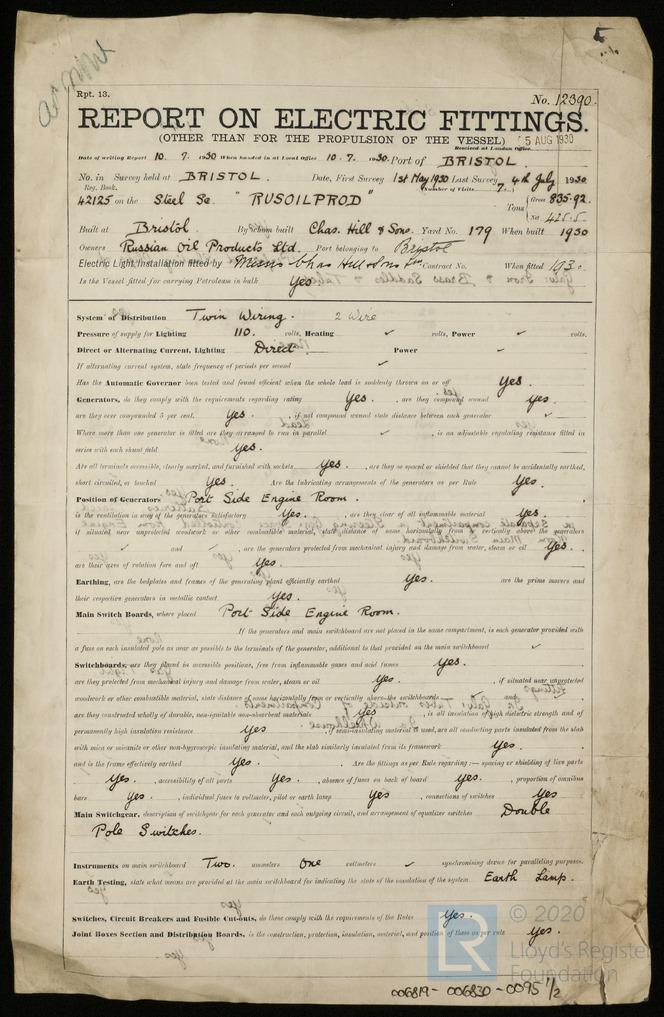 Rpt. 13.
No. 12390.
REPORT ON ELECTRIC FITTINGS.
(OTHER THAN FOR THE PROPULSION OF THE VESSEL) 5 AUG 1930
Received at London Office
Date of writing Report 10. 7. 1930 When handed in at Local Office 10. 7. 1930. Port of BRISTOL
No. in Survey held at BRISTOL. Date, First Survey 1st May 1930 Last Survey 4th July 1930
Reg. Book. (Number of Visits 7.)
42125 on the Steel Sc. "RUSOILPROD" Tons Gross 835.92
Net 425.5
Built at Bristol. By whom built Chas. Hill & Sons. Yard No. 179 When built 1930
Owners Russian Oil Products Ltd. Port belonging to Bristol
Electric Light Installation fitted by Messrs Chas Hill & Sons Contract No. When fitted 1930
Is the Vessel fitted for carrying Petroleum in bulk Yes
System of Distribution Twin Wiring. 2 Wire
Pressure of supply for Lighting 110. volts, Heating ✓ volts, Power ✓ volts.
Direct or Alternating Current, Lighting Direct Power ✓
If alternating current system, state frequency of periods per second ✓
Has the Automatic Governor been tested and found efficient when the whole load is suddenly thrown on or off Yes.
Generators, do they comply with the requirements regarding rating Yes. , are they compound wound yes.
are they over compounded 5 per cent. Yes. , if not compound wound state distance between each generator ✓
Where more than one generator is fitted are they arranged to run in parallel ✓ , is an adjustable regulating resistance fitted in
series with each shunt field Yes.
Are all terminals accessible, clearly marked, and furnished with sockets Yes. , are they so spaced or shielded that they cannot be accidentally earthed,
short circuited, or touched Yes. Are the lubricating arrangements of the generators as per Rule Yes.
Position of Generators Port Side Engine Room.
is the ventilation in way of the generators satisfactory Yes. , are they clear of all inflammable material Yes.
if situated near unprotected woodwork or other combustible material, state distance of same horizontally from or vertically above the generators
✓ and ✓ , are the generators protected from mechanical injury and damage from water, steam or oil Yes.
are their axes of rotation fore and aft Yes.
Earthing, are the bedplates and frames of the generating plant efficiently earthed Yes. are the prime movers and
their respective generators in metallic contact Yes.
Main Switch Boards, where placed Port Side Engine Room.
If the generators and main switchboard are not placed in the same compartment, is each generator provided with
a fuse on each insulated pole as near as possible to the terminals of the generator, additional to that provided on the main switchboard ✓
Switchboards, are they placed in accessible positions, free from inflammable gases and acid fumes Yes.
are they protected from mechanical injury and damage from water, steam or oil Yes. , if situated near unprotected
woodwork or other combustible material, state distance of same horizontally from or vertically above the switchboards and
are they constructed wholly of durable, non-ignitable non-absorbent materials Yes , is all insulation of high dielectric strength and of
permanently high insulation resistance Yes , if semi-insulating material is used, are all conducting parts insulated from the slab
with mica or micanite or other non-hygroscopic insulating material, and the slab similarly insulated from its framework Yes.
and is the frame effectively earthed Yes. Are the fittings as per Rule regarding:— spacing or shielding of live parts
Yes. , accessibility of all parts Yes. , absence of fuses on back of board Yes. , proportion of omnibus
bars Yes. , individual fuses to voltmeter, pilot or earth lamp Yes , connections of switches Yes
Main Switchgear, description of switchgear for each generator and each outgoing circuit, and arrangement of equalizer switches Double
Pole Switches.
Instruments on main switchboard Two. ammeters One voltmeters ✓ synchronising device for paralleling purposes.
Earth Testing, state what means are provided at the main switchboard for indicating the state of the insulation of the system Earth Lamp.
Switches, Circuit Breakers and Fusible Cut-outs, do these comply with the requirements of the Rules Yes.
Joint Boxes Section and Distribution Boards, is the construction, protection, insulation, material, and position of these as per rule Yes.
© 2020
Lloyd's Register
Foundation
006819 - 006830 - 0095 1/2